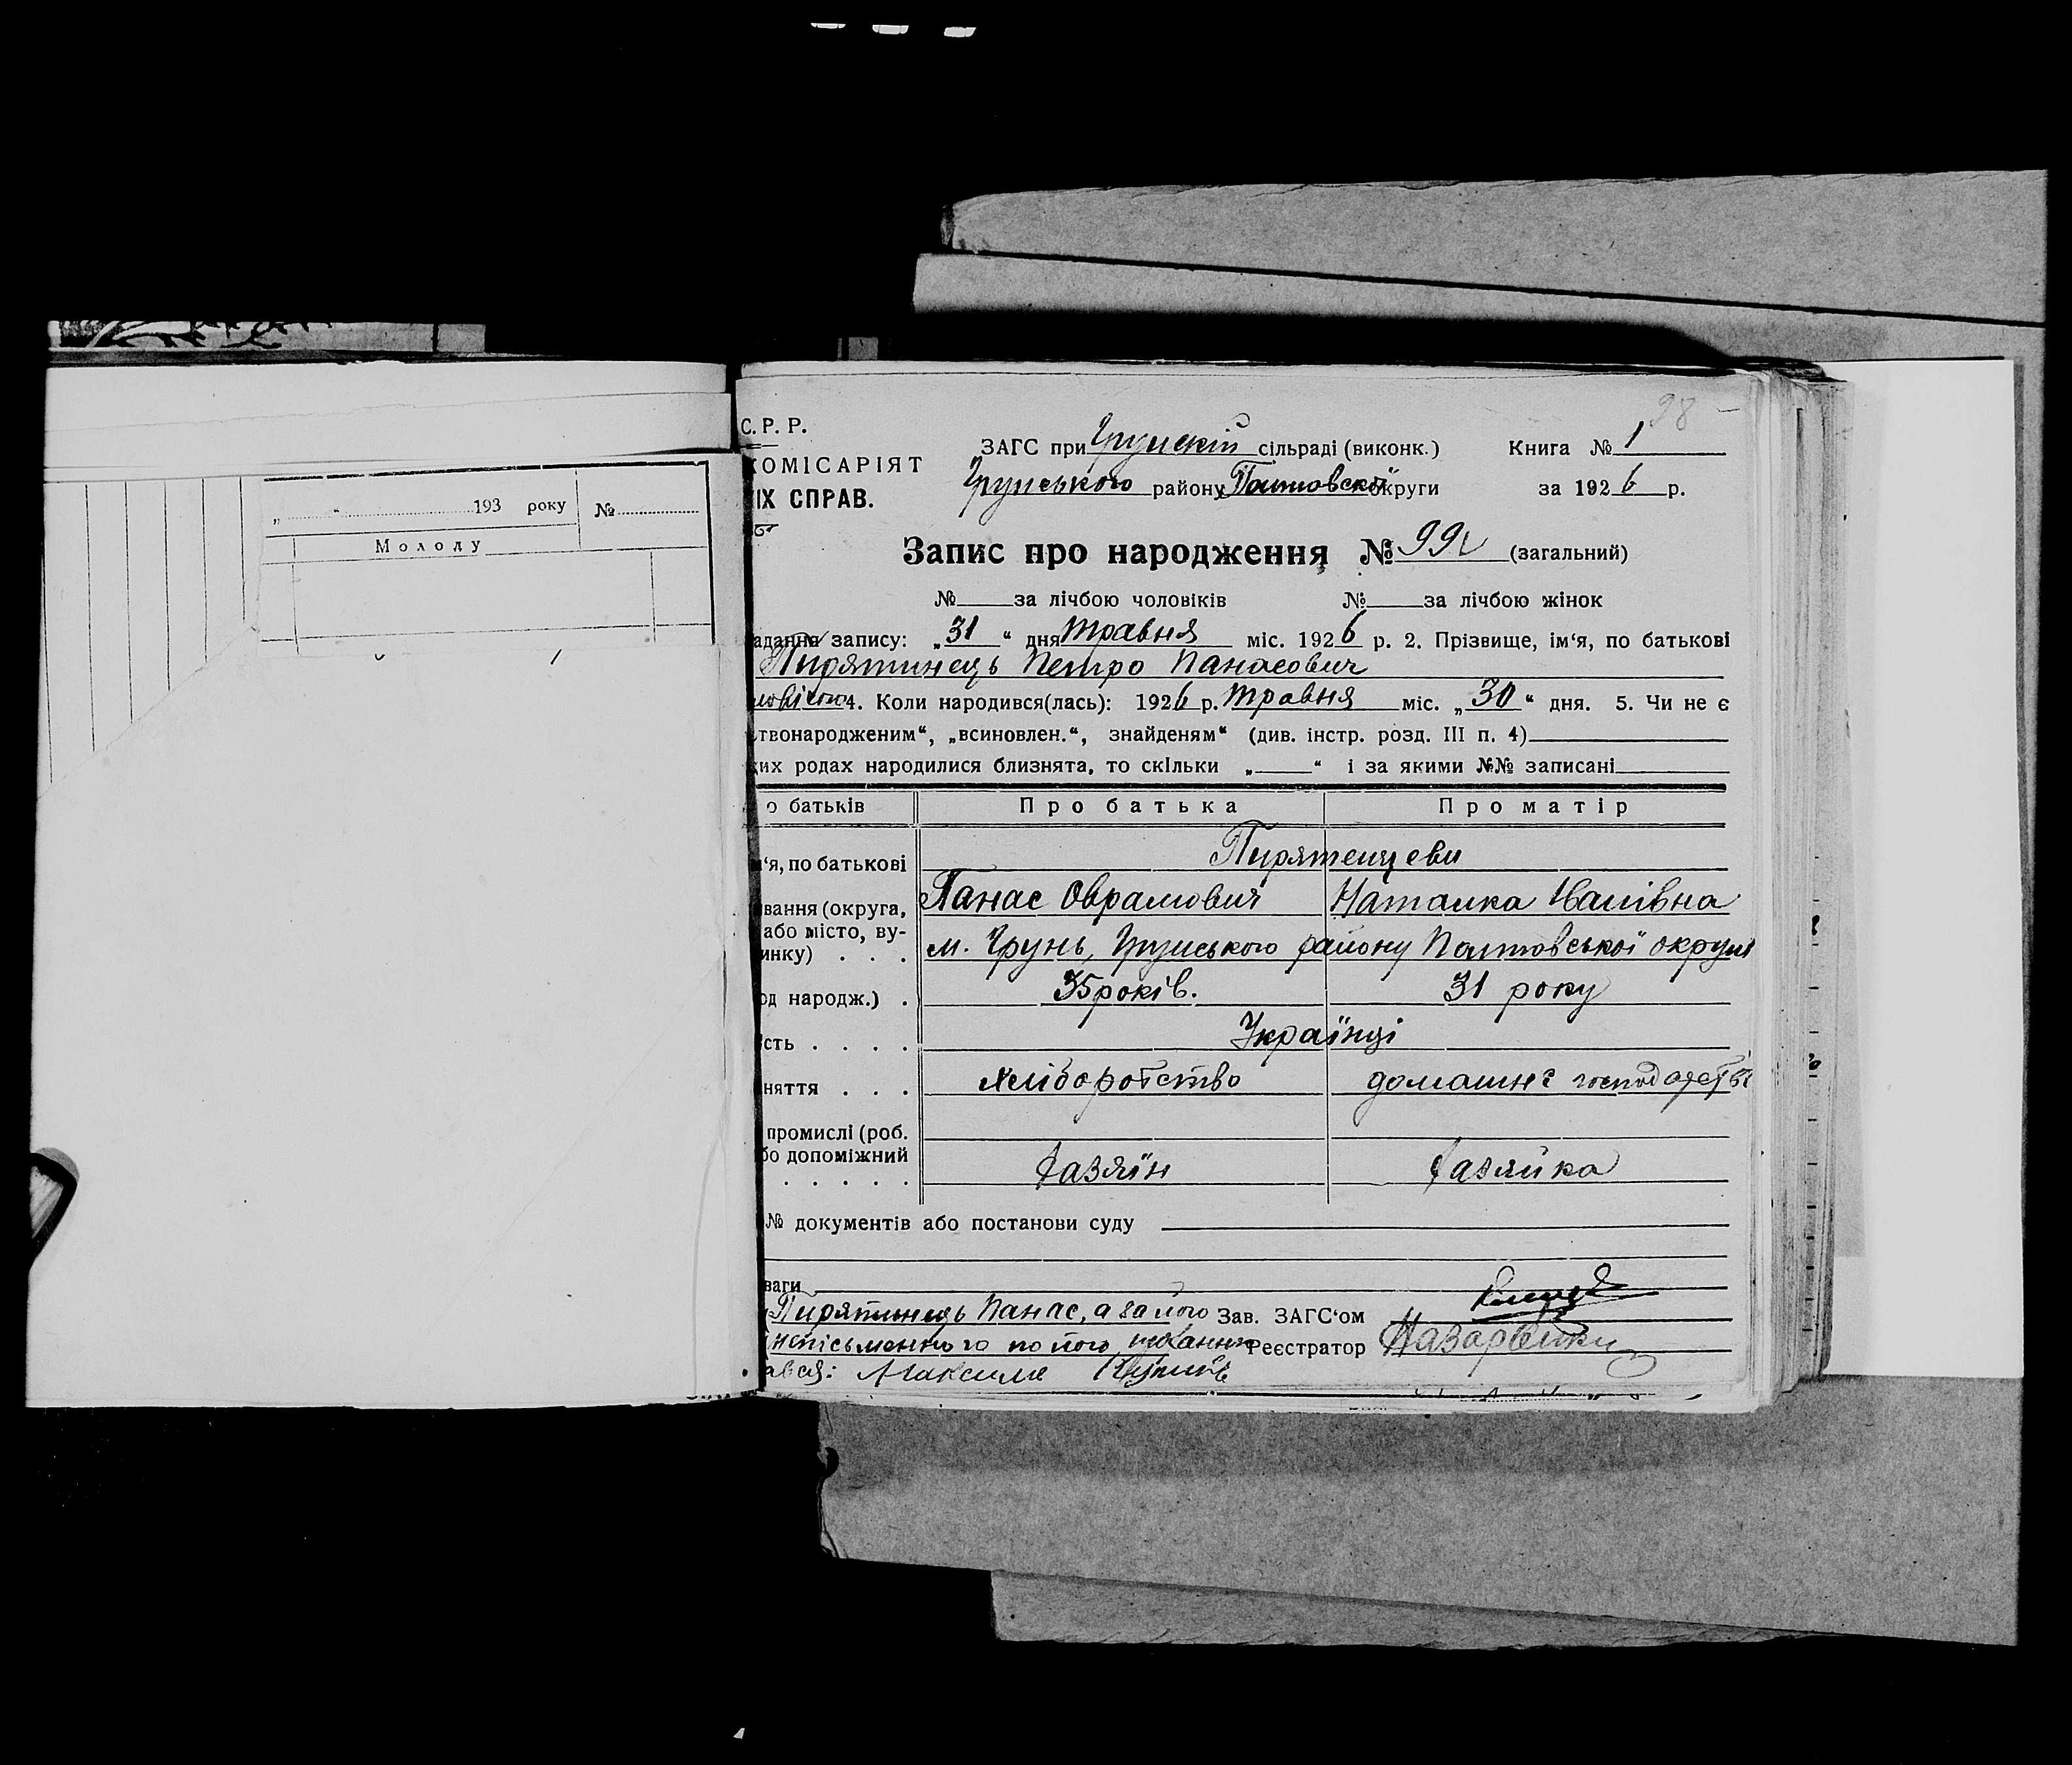 " " 193 року №
Молоду
98
С. Р. Р.
ЗАГС при Грунскій сільраді (виконк.) Книга № 1
КОМІСАРІЯТ
Грунського району Полтовської округи за 1926 р.
ІХ СПРАВ.
Запис про народження № 99 (загальний)
№ за лічбою чоловіків № за лічбою жінок
адання запису: „31“ дня травня міс. 1926 р. 2. Прізвище, ім‘я, по батькові
Пирятинець Петро Панасович
4. Коли народився(лась): 1926 р. травня міс. „30“ дня. 5. Чи не є
твонародженим“, „всиновлен.“, знайденям“ (див. інстр. розд. III п. 4)
их родах народилися близнята, то скільки „ “ і за якими №№ записані
о батьків Про батька Про матір
‘я, по батькові Пирятенцеви
вання (округа, Панас Оврамович Наталка Іванівна
або місто, ву-
инку) . . . м. Грунь, Грунського району Полтовської округи
од народж.) . 35 років. 31 року
сть . . . . Українці
няття . . . хліборобство домашнє господарство
промислі (роб.
бо допоміжний
. . . . . хазяїн хазяйка
№ документів або постанови суду
ваги
Пирятинець Панас, а за його Зав. ЗАГС‘ом
неписьменного по його проханню Реєстратор Назаренко
ався: Максим